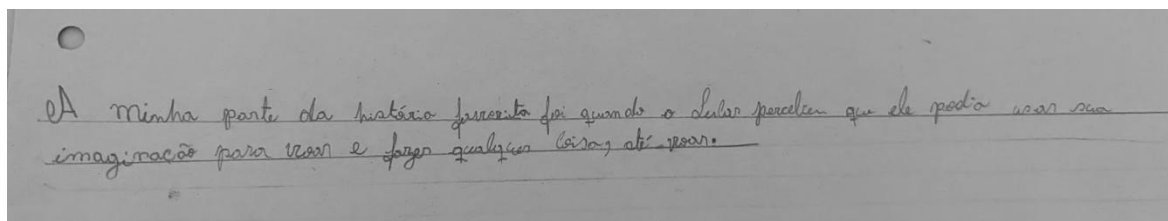 A minha parte da história favorita foi quando o Lucas percebeu que ele podia usar sua
imaginação para voar e fazer qualquer coisa, até voar.